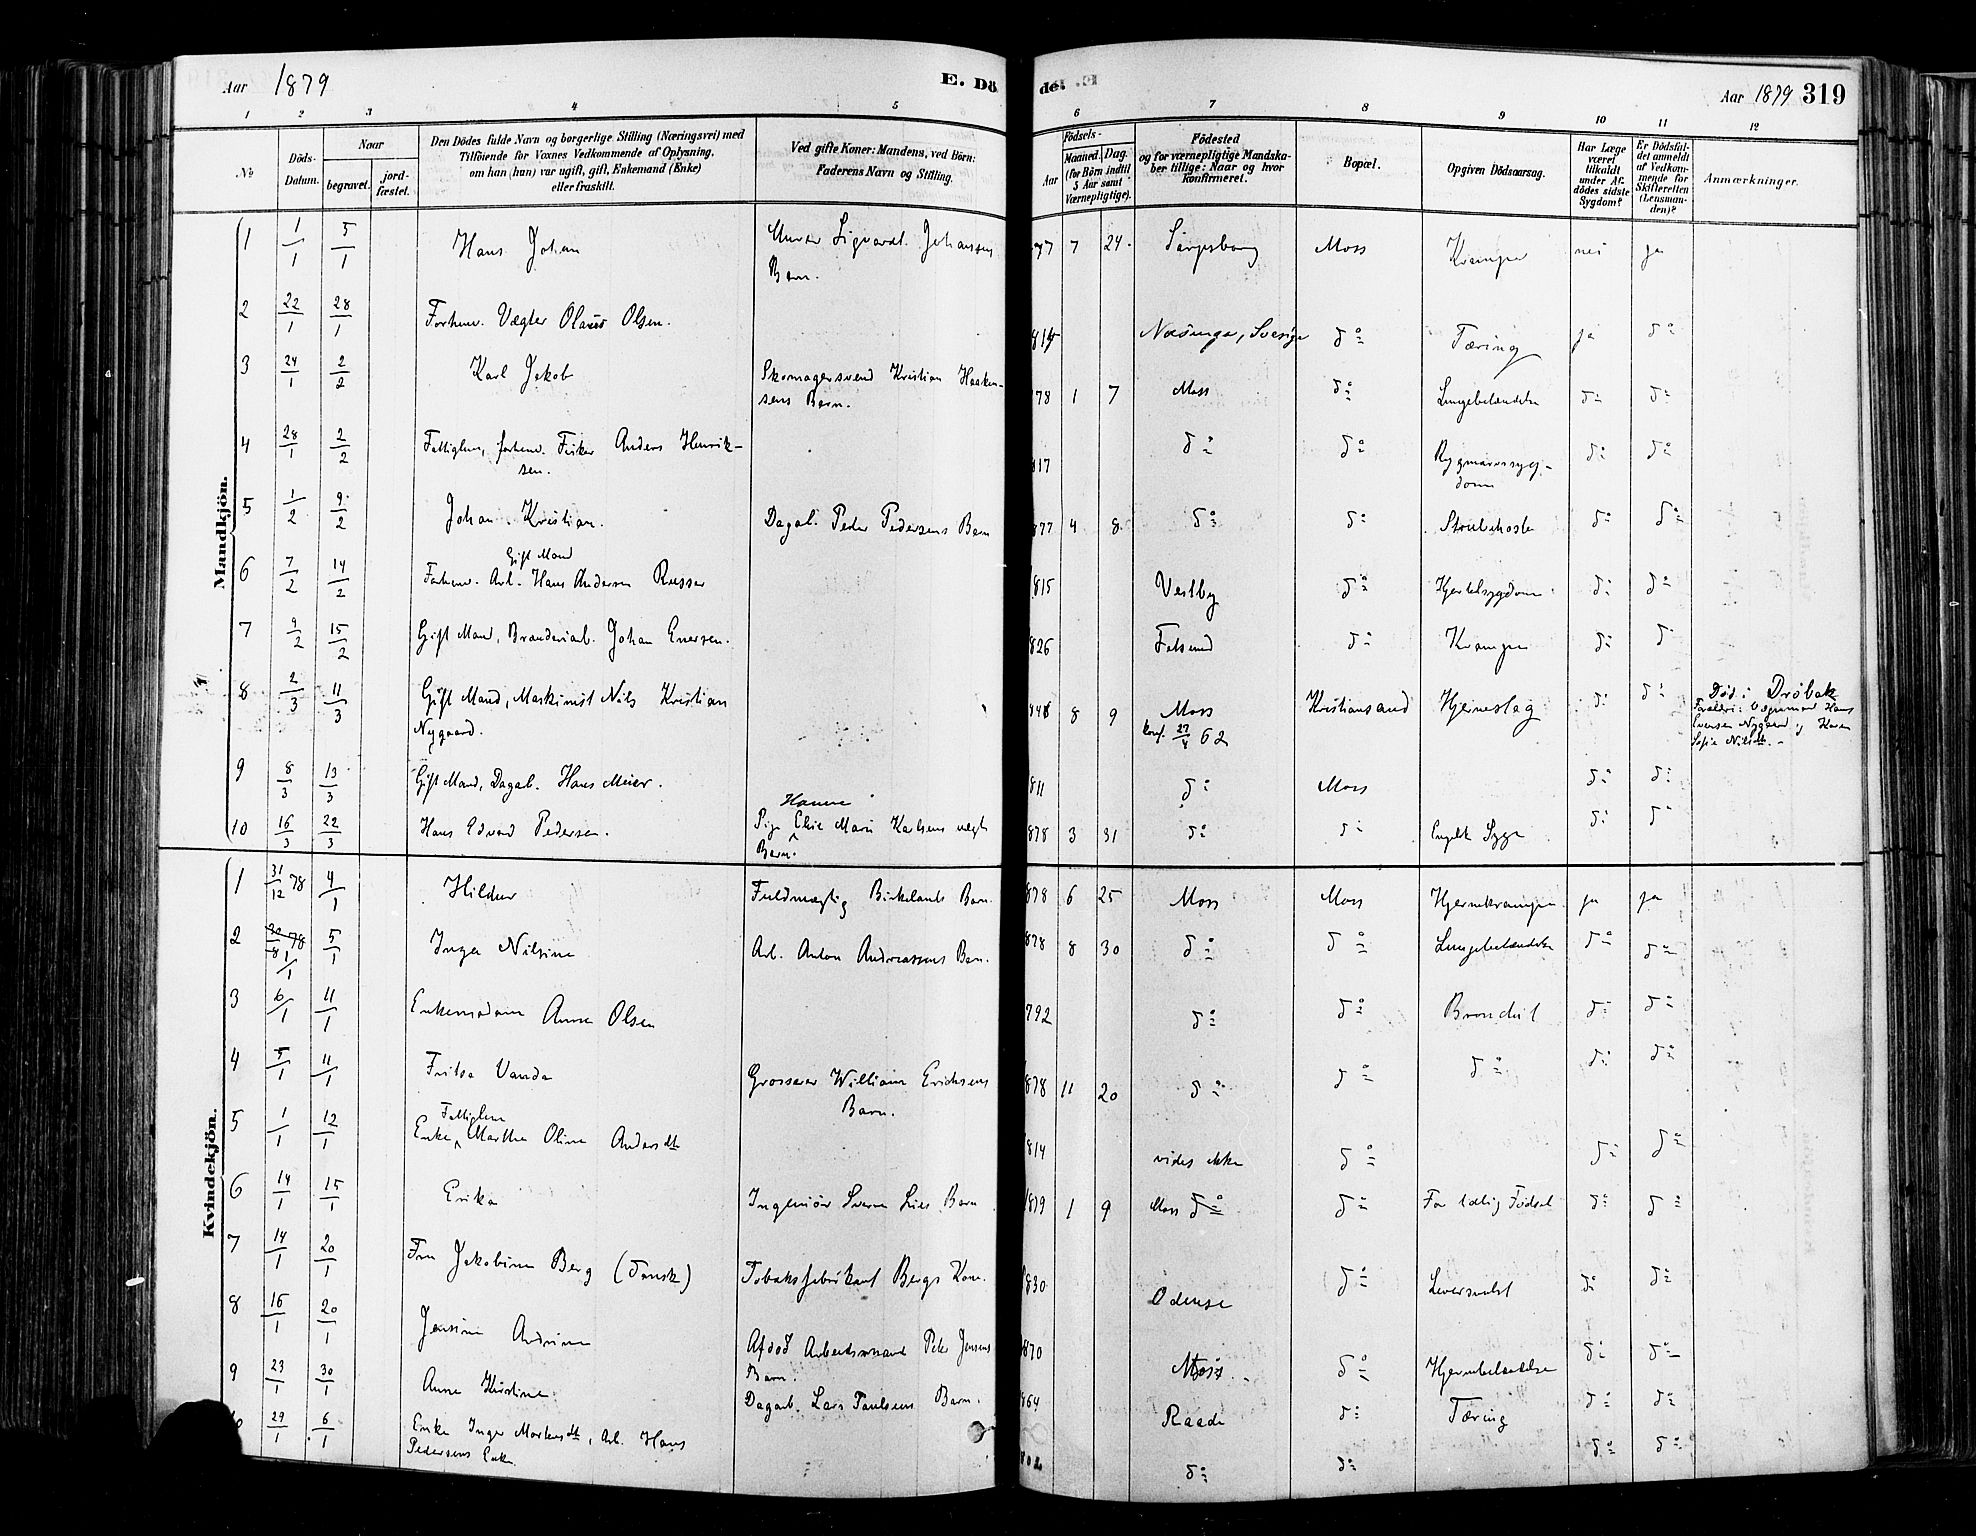 Aar 1879
E. Dö
de.
Aar 1879 319
1 2 3 4 5 6 7 8 9 10 11 12
No
Döds-Datum.
Naar
begravet.
jord-fæstet.
Den Dödes fulde Navn og borgerlige Stilling (Næringsvei) med
Tilföiende for Voxnes Vedkommende af Oplysning,
om han (hun) var ugift, gift, Enkemand (Enke)
eller fraskilt.
Ved gifte Koner: Mandens, ved Börn:
Faderens Navn og Stilling.
Födsels-
Aar
Maaned. Dag.
(for Börn indtil
5 Aar samt
Værnepligtige).
Födested
og for værnepligtige Mandska-
ber tillige: Naar og hvor
konfirmeret.
Bopæl.
Opgiven Dödsaarsag.
Har Læge
været
tilkaldt
under Af-
dödes sidste
Sygdom?
Er Dödsfal-
det anmeldt
af Vedkom-
mende for
Skifteretten
(Lensman-
den)?
Anmærkninger.
Mandkjön.
1 1/1 5/1 Hans Johan Murer Sigvardt Johansens Barn. 877 7 24. Sarpsborg Moss Kramper nei ja
2 22/1 28/1 Forhenv. Vægter Olaus Olsen. Næsinge, Sverige do Tæring ja do
3 24/1 2/2 Karl Jakob Skomagersvend Kristian Haaken-
sens Barn. 878 1 7 Moss do Lungebetændelse do do
4 28/1 2/2 Fattiglem, forhenv. Fisker Anders Henrik-
sen. 817 do do Rygmarvssyg-
dom do do
5 1/2 9/2 Johan Kristian. Dagarb. Peder Pedersens Barn 877 4 8 do do Strubehoste do do
6 7/2 14/2 Gift Mand
Forhenv. Arb. Hans Andersen Russer 815 Vestby do Hjertesygdom do do
7 9/2 15/2 Gift Mand, Brænderiarb. Johan Enersen. 826 do Kramper do do
8 2/3 11/3 Gift Mand, Maskinist Nils Kristian
Nygaard. 8 9 Moss
konf. 27/4 62 Kristiansand Hjerneslag do do Död i Dröbak
Forældre: Hans
Evensen Nygaard og Karen
Sofie Nilsdt. -
9 8/3 13/3 Gift Mand, Dagarb. Hans Meier. 811 do Moss do do
10 16/3 22/3 Hans Edvard Pedersen. Pige Hanne Elise Marie Karlsens uægte
Barn. 878 3 31 do do Engelsk Syge do do
Kvindekjön.
1 31/12 78 4/1 Hildur Fuldmægtig Birkelands Barn. 878 6 25 Moss Moss Hjernekramper ja ja
2 1/1 5/1 Inga Nilsine Arb. Anton Andreassens Barn. 878 8 30 do do Lungebetændelse do do
3 6/1 11/1 Enkemadam Anne Olsen 792 do do Bronchit do do
4 5/1 11/1 Fritse Vanda Grosserer William Erichsens
Barn. 878 11 20 do do do do do
5 1/1 12/1 Enke Fattiglem Marthe Oline Andersdt 814 vides ikke do do do
6 14/1 15/1 Erika Ingeniör Sverre Lies Barn 1879 1 9 Moss do do For tidlig Födsel do do
7 14/1 20/1 Fru Jakobine Berg (Dansk) Tobaksfabrikant Bergs Kone. 1830 Odense do Leversvulst do do
8 16/1 20/1 Jensine Andrine Afdöd Arbeidsmand Peter Jensens
Barn. 870 Moss do Hjernebetændelse do do
9 23/1 30/1 Anne Kristine Dagarb. Lars Paulsens Barn. 864 Raade do Tæring do do
29/1 6/1 Enke Inger Mortensdt, Arb. Hans
Pedersens Enke. do do do do